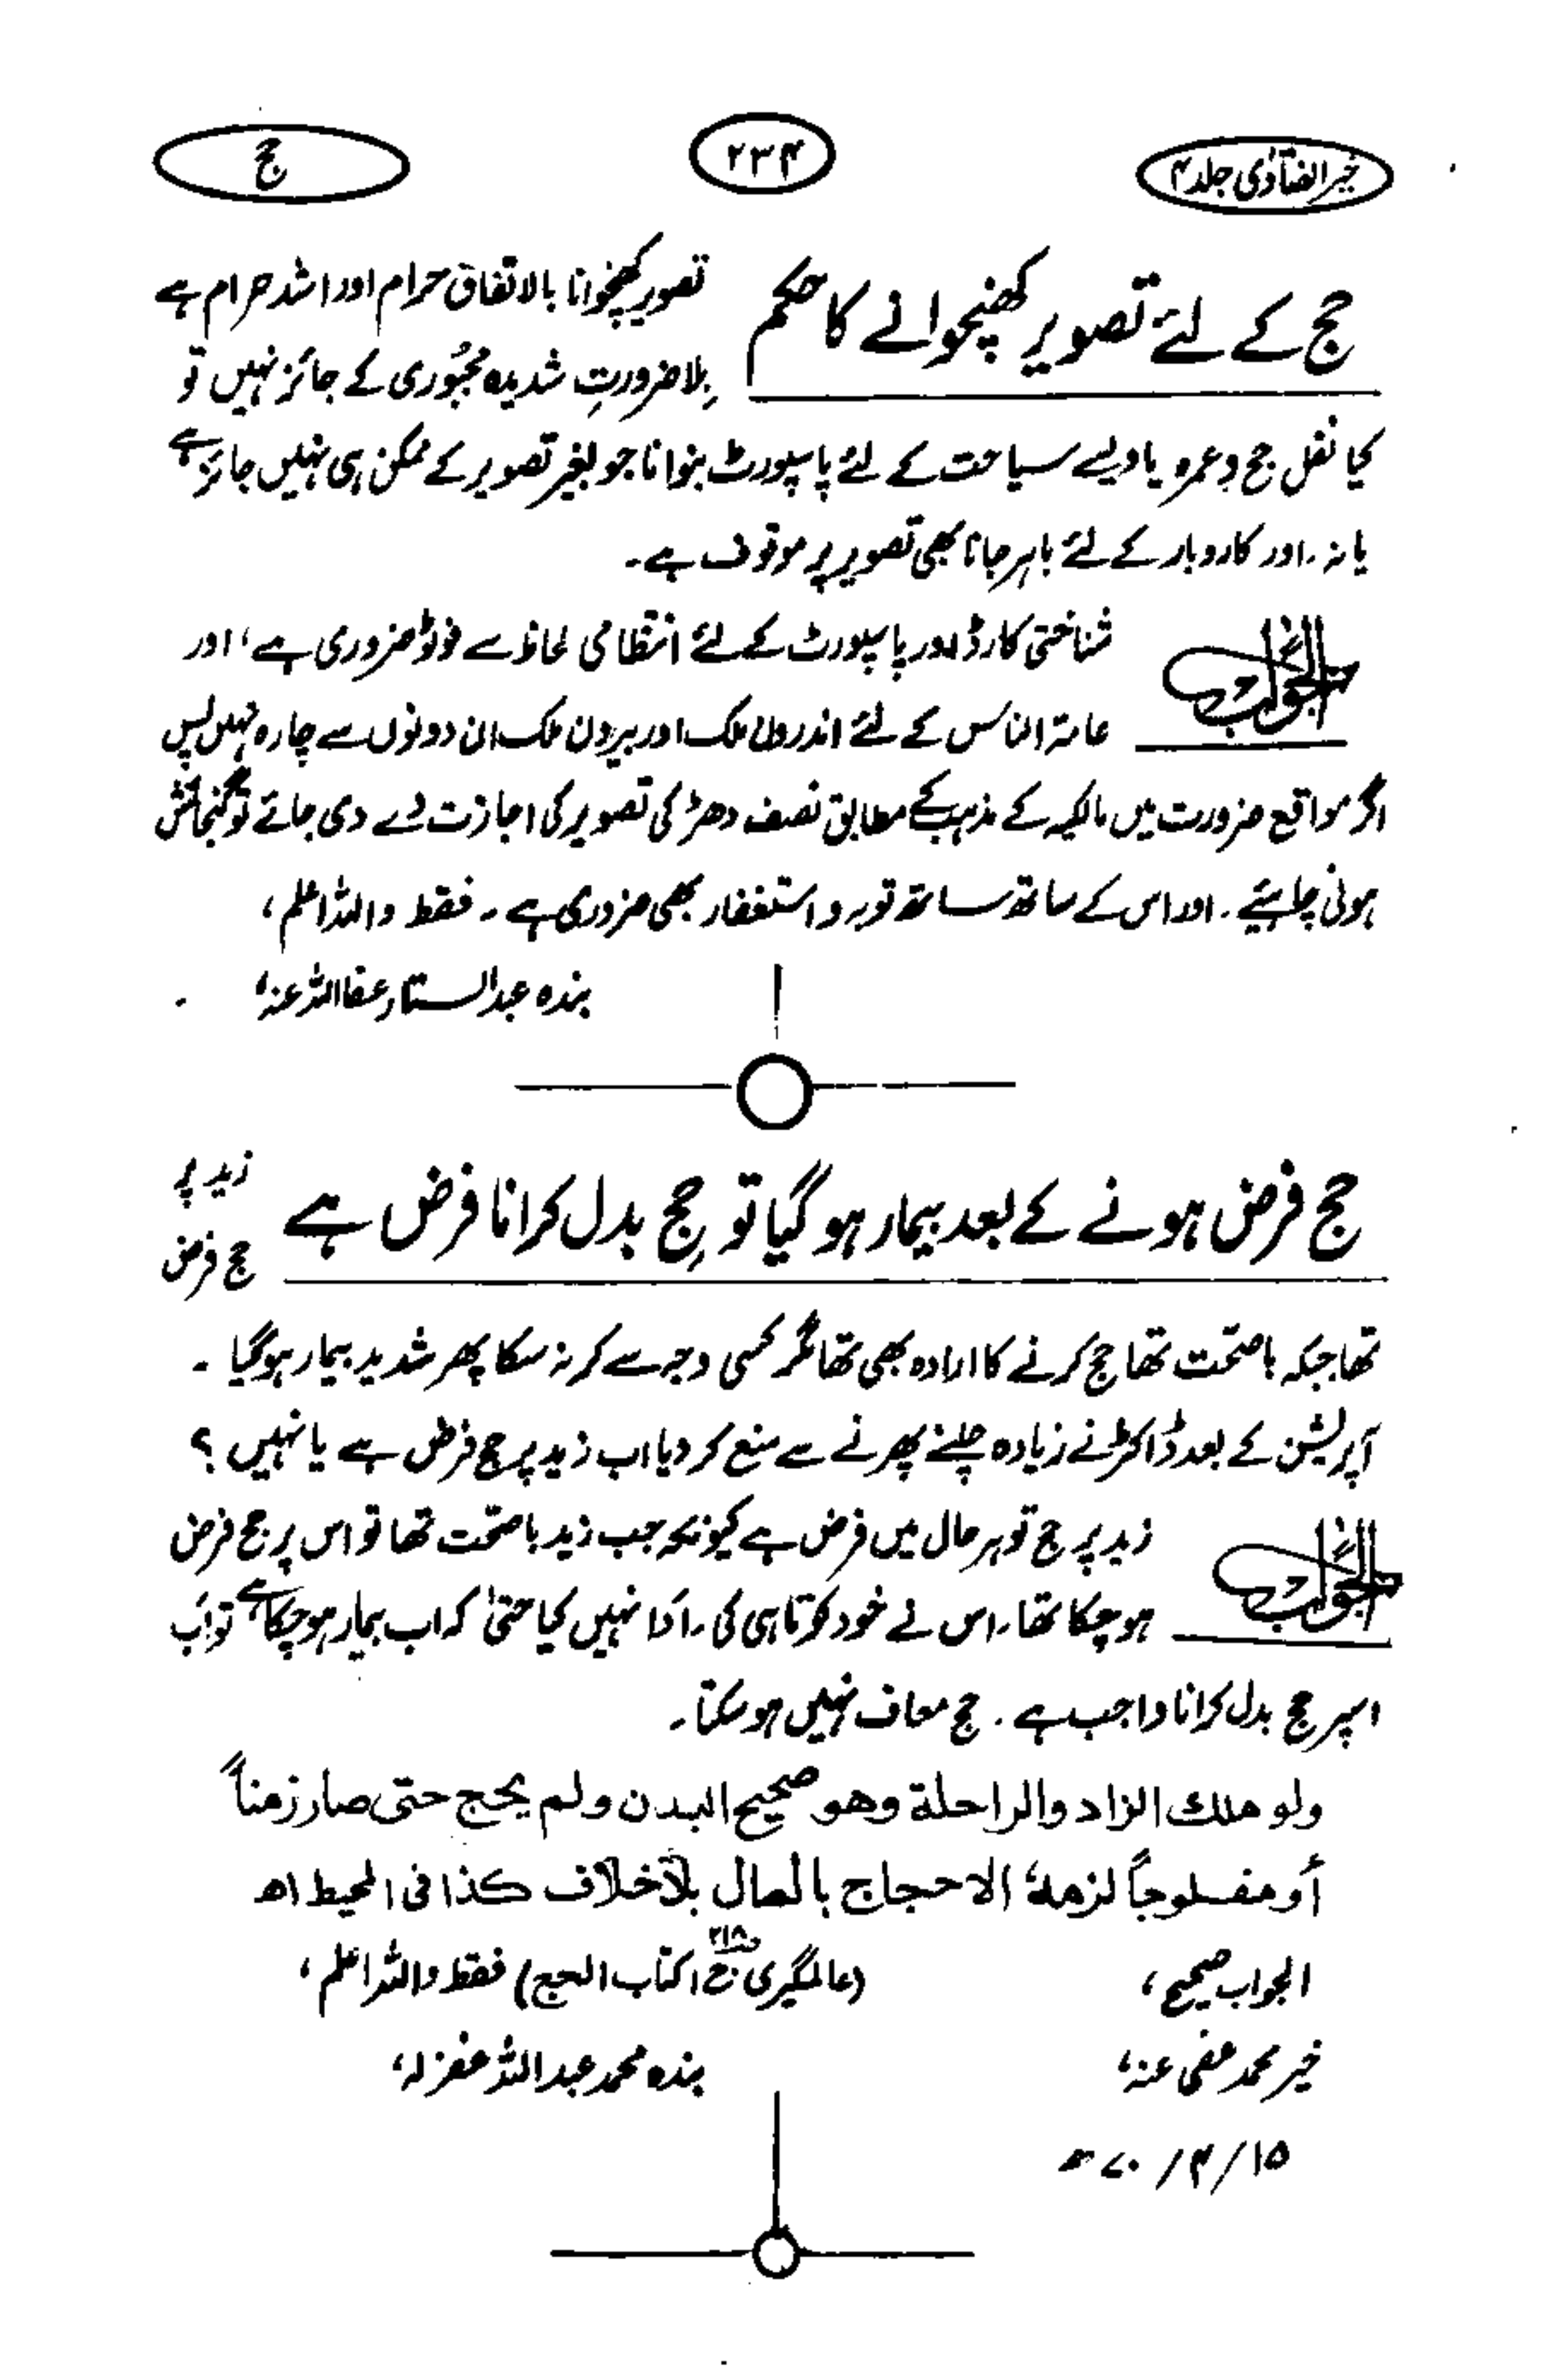 خیر الفتاوٰی جلد ۴
۲۳۴
حج
حج کے لئے تصویر کھنچوانے کا حکم
تصویر کھنچوانا بالاتفاق حرام اور اشد حرام ہے
بلا ضرورتِ شدیدہ مجبوری کے جائز نہیں تو
کیا نفل حج وعمرہ یا ویسے سیاحت کے لئے پاسپورٹ بنوانا جو بغیر تصویر کے ممکن ہی نہیں جائز ہے
یا نہ۔ اور کاروبار کے لئے باہر جانا بھی تصویر پر موقوف ہے۔
الجواب
شناختی کارڈ اور پاسپورٹ کے لئے انتظامی لحاظ سے فوٹو ضروری ہے، اور
عامۃ الناس کے لئے اندرون ملک اور بیرون ملک ان دونوں سے چارہ نہیں پس
اگر مواقع ضرورت میں مالکیہ کے مذہب کے مطابق نصف دھڑ کی تصویر کی اجازت دے دی جائے تو گنجائش
ہونی چاہیئے۔ اور اس کے ساتھ ساتھ توبہ و استغفار بھی ضروری ہے۔ فقط واللہ اعلم،
بندہ عبدالستار عفا اللہ عنہ،
حج فرض ہونے کے بعد بیمار ہو گیا تو حجِ بدل کرانا فرض ہے
زید پر
حج فرض
تھا جبکہ باصحت تھا حج کرنے کا ارادہ بھی تھا مگر کسی وجہ سے کر نہ سکا پھر شدید بیمار ہو گیا۔
آپریشن کے بعد ڈاکٹر نے زیادہ چلنے پھرنے سے منع کر دیا اب زید پر حج فرض ہے یا نہیں ؟
الجواب
زید پر حج تو ہر حال میں فرض ہے کیونکہ جب زید باصحت تھا تو اس پر حج فرض
ہو چکا تھا۔ اس نے خود کوتاہی کی۔ ادا نہیں کیا حتیٰ کہ اب بیمار ہو چکا ہے تو اب
اسپر حج بدل کرانا واجب ہے۔ حج معاف نہیں ہو سکتا۔
ولو ملك الزاد والراحلة وهو صحيح البدن ولم يحج حتى صار زمناً
أو مفلوجاً لزمه الاحجاج بالمال بلاخلاف كذا فى المحيط اھ
(عالمگیری ج۱ ص۲۱۸ کتاب الحج) فقط واللہ اعلم،
الجواب صحیح،
بندہ محمد عبداللہ غفرلہ،
خیر محمد عفی عنہ،
۱۵/۴/۷۰ھ